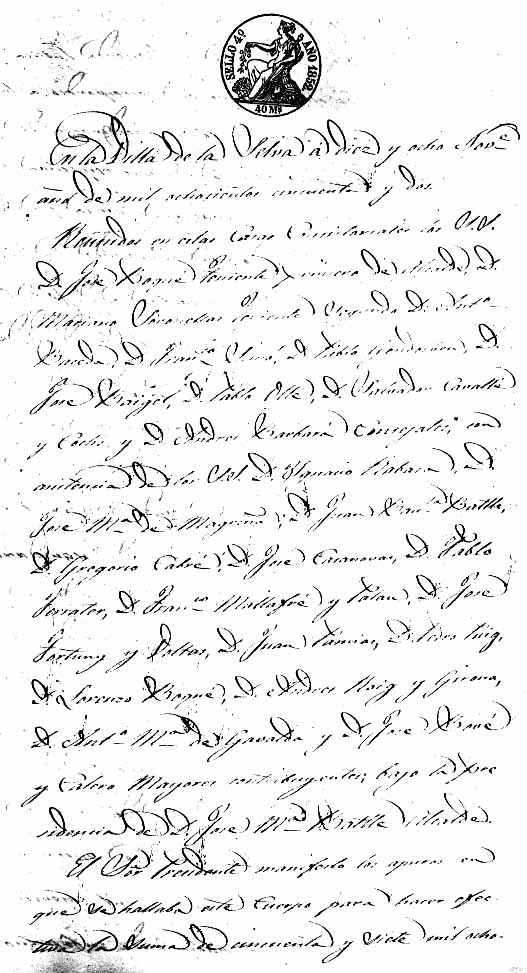 SELLO 4º AÑO 1852.
40 Ms
En la Villa de la Selva á diez y ocho Nove
de mil ochocientos cincuenta y dos.
Reunidos en estas Casas Consistoriales los S.S.
D. Jose Roque Teniente primero de Alcalde, D.
Mariano Teniente Segundo D. Anto
D. Franco Simó, D. Pablo D.
Jose D. Pablo Olle, D. Salvador Cavallé
y Cochs y D. Andres Barbará Concejales; con
asistencia de los S.S. D. Ygnacio Rabasa, D.
Jose Ma de Magriña, D. Juan Bauta Batlle,
D. Gregorio Cabré, D. Jose Casanovas, D. Pablo
Ferrater, D. Franco Mallafré y Palau, D. Jose
Fortuny y D. Juan D. Pedro Puig,
D. Lorenzo Roque, D. Andres Roig y Girona,
D. Anto Ma de Gavaldá y D. Jose
y Mayores contribuyentes; bajo la pre
sidencia de D. Jose Ma Batlle Alcalde.
El Sor Presidente manifestó los apuros en
que se hallaba este Cuerpo para hacer efec
tiva la suma de cincuenta y siete mil ocho-